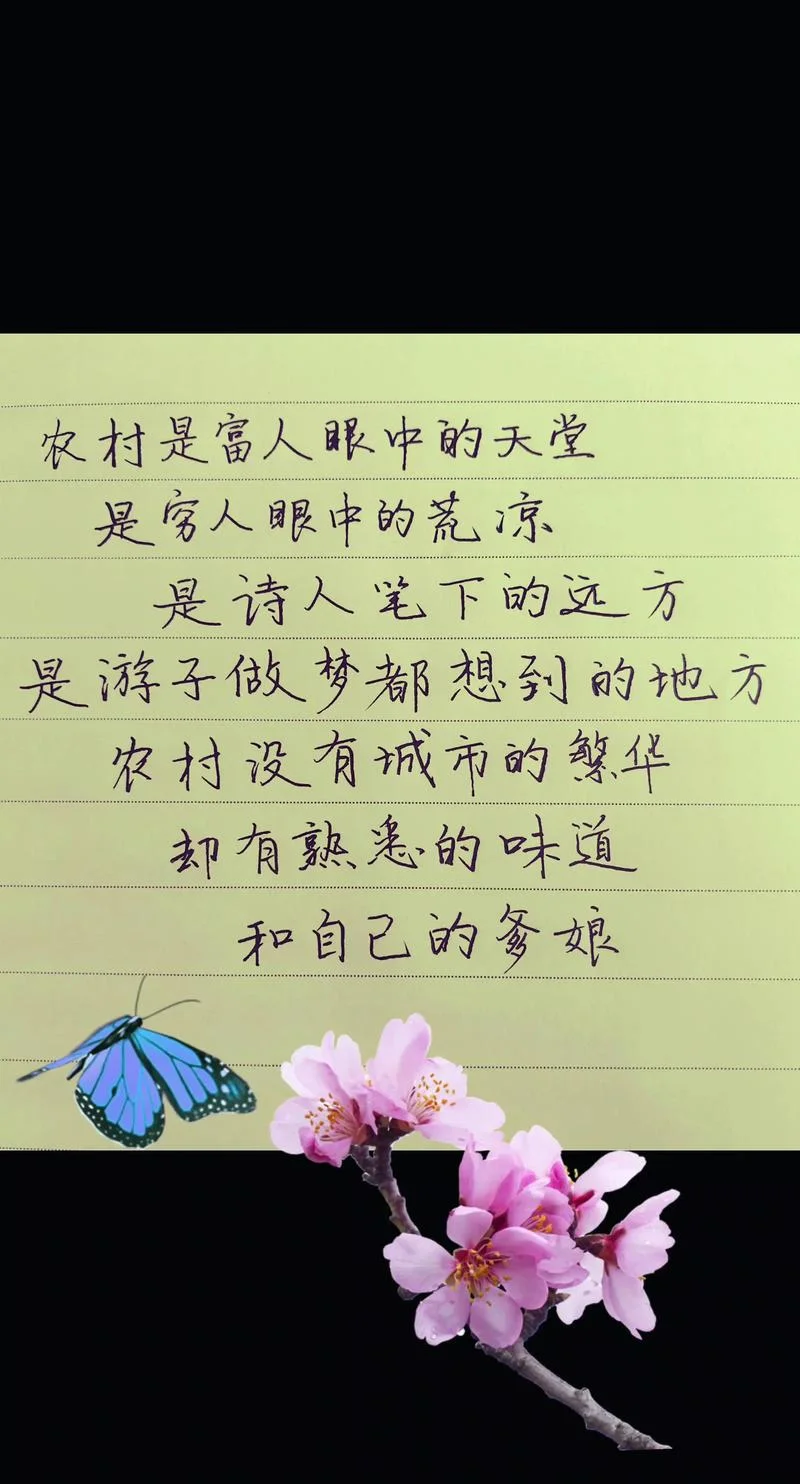 农村是富人眼中的天堂
是穷人眼中的荒凉
是诗人笔下的远方
是游子做梦都想到的地方
农村没有城市的繁华
却有熟悉的味道
和自己的爹娘